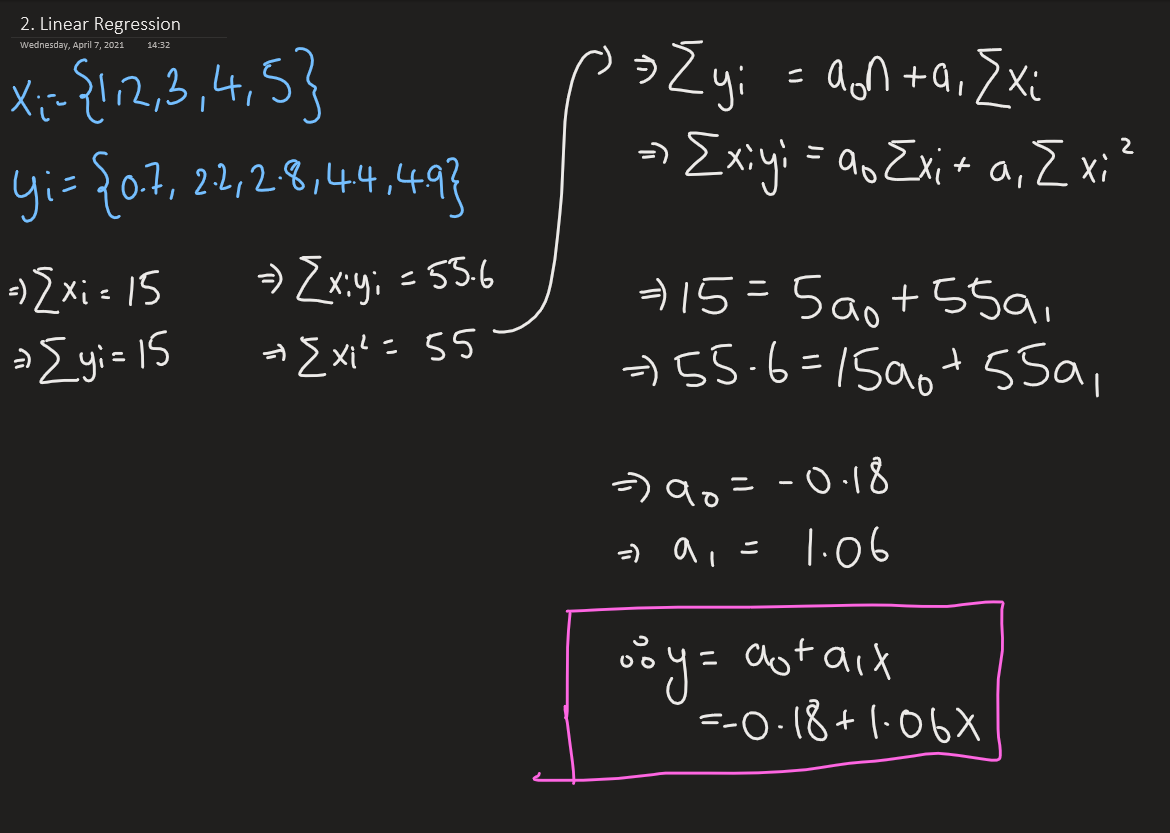 2. Linear Regression
Wednesday, April 7, 2021 14:32
xi = {1,2,3,4,5}
yi = {0.7, 2.2, 2.8, 4.4, 4.9}
⇒ ∑xi = 15
⇒ ∑yi = 15
⇒ ∑xiyi = 55.6
⇒ ∑xi² = 55
⇒ ∑yi = a₀n + a₁∑xi
⇒ ∑xiyi = a₀∑xi + a₁∑xi²
⇒ 15 = 5a₀ + 55a₁
⇒ 55.6 = 15a₀ + 55a₁
⇒ a₀ = -0.18
⇒ a₁ = 1.06
∴ y = a₀ + a₁x
= -0.18 + 1.06x